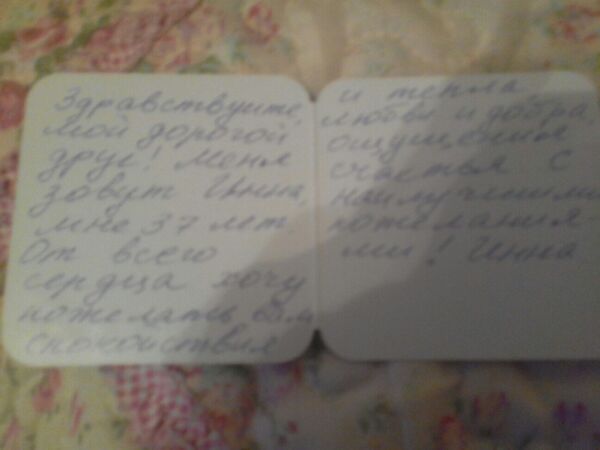 Здравствуйте,
мой дорогой
друг! Меня
зовут Инна,
мне 37 лет
От всего
сердца хочу
пожелать Вам
спокойствия
и тепла
любви и добра
ощущения
счастья С
наилучшими
пожелания-
ми! Инна